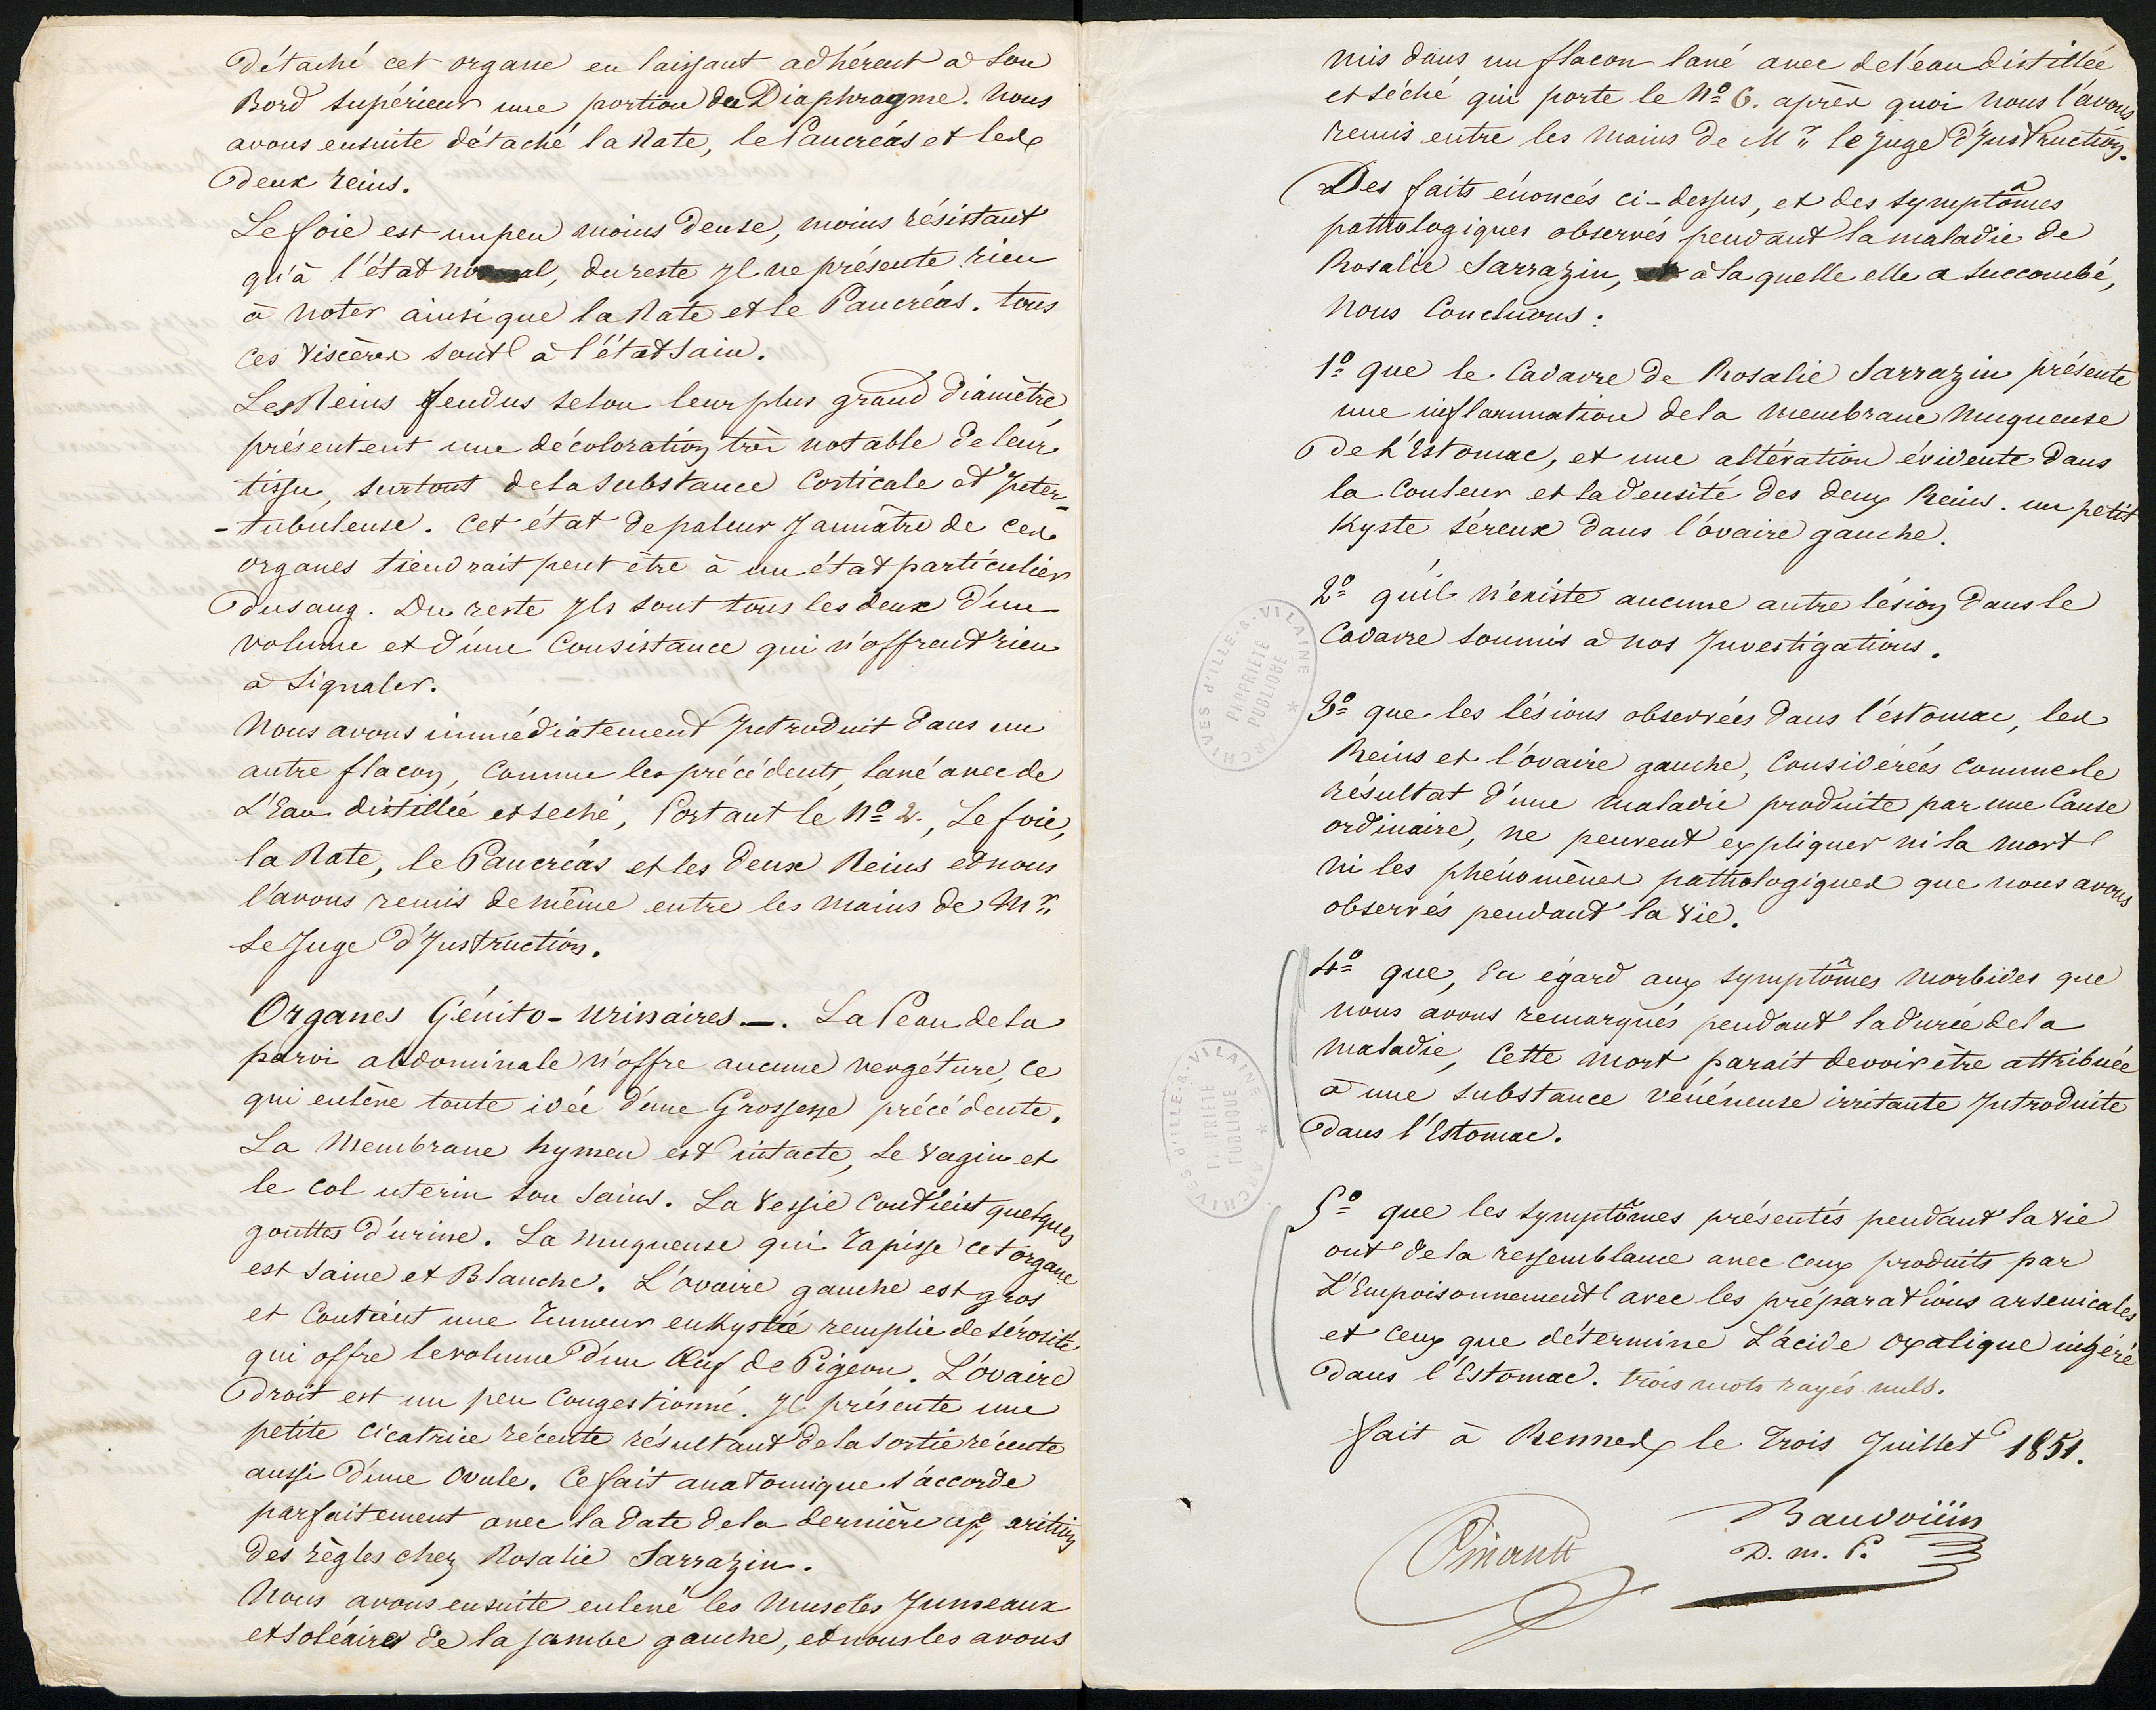 détaché cet organe en laissant adhérent à son
Bord supérieur une portion du Diaphragme. Nous
avons ensuite détaché la Rate, le Pancréas et les
deux reins.
Le foie est un peu moins dense, moins résistant
qu'à l'état normal, du reste Il ne présente rien
à noter ainsi que la Rate et le Pancréas. tous
ces viscères sont à l'état sain.
Les Reins fendus selon leur plus grand diamètre,
présentent une décoloration très notable de leur
tissu, surtout de la substance Corticale et Inter-
-tubuleuse. Cet état de paleur Jaunâtre de ces
organes tiendrait peut être à un état particulier
du sang. Du reste Ils sont tous les deux d'un
volume et d'une Consistance qui n'offrent rien
à signaler.
Nous avons immédiatement Introduit dans un
autre flacon, comme les précédents, lavé avec de
L'Eau distillée et seché, Portant le Nº 2., Le foie,
la Rate, le Pancréas et les deux Reins et nous
l'avons remis de même entre les mains de Mr.
Le Juge d'Instruction.
Organes Génito-Urinaires —. La Peau de la
paroi abdominale n'offre aucune vergéture, ce
qui enlève toute idée d'une Grossesse précédente.
La Membrane hymen est intacte, le vagin et
le col uterin son sains. La vessie contient quelques
gouttes d'urine. La muqueuse qui tapisse cet organe
est saine et Blanche. L'ovaire gauche est gros
et Contient une Tumeur enkystée remplie de sérosité
qui offre le volume d'un Œuf de Pigeon. L'ovaire
droit est un peu Congestionné. Il présente une
petite cicatrice récente résultant de la sortie récente
aussi d'une Ovule. Ce fait anatomique s'accorde
parfaitement avec la date de la dernière apparition
des règles chez Rosalie Sarrazin.
Nous avons ensuite enlevé les Muscles Jumeaux
et soléaires de la jambe gauche, et nous les avons
mis dans un flacon lavé avec de l'eau distillée
et séché qui porte le Nº 6. après quoi nous l'avons
remis entre les mains de Mr. le Juge d'Instruction.
Des faits énoncés ci-dessus, et des symptômes
pathologiques observés pendant la maladie de
Rosalie Sarrazin, à laquelle elle a succombé,
Nous Concluons:
1º que le Cadavre de Rosalie Sarrazin présente
une inflammation de la membrane Muqueuse
de L'Estomac, et une altération évidente dans
la Couleur et la densité des deux Reins. un petit
Kyste séreux dans l'ovaire gauche.
2º qu'il n'existe aucune autre lésion dans le
Cadavre soumis à nos Investigations.
3º que les lésions observées dans l'estomac, les
Reins et l'ovaire gauche, Considérées comme le
résultat d'une Maladie produite par une Cause
ordinaire, ne peuvent expliquer ni la mort
ni les phénomènes pathologiques que nous avons
observés pendant la vie.
4º que, Eu égard aux symptômes Morbides que
nous avons remarqués pendant la durée de la
Maladie, Cette mort parait devoir être attribuée
à une substance vénéneuse irritante Introduite
dans l'Estomac.
5º que les symptômes présentés pendant la vie
ont de la ressemblance avec ceux produits par
L'Empoisonnement avec les préparations arsenicales
et ceux que détermine L'acide oxalique ingéré
dans l'Estomac. trois mots rayés nuls.
fait à Rennes le Trois Juillet 1851.
Pinault
Baudoüin
D. M. P.
ARCHIVES D'ILLE-&-VILAINE
PROPRIETE
PUBLIQUE
ARCHIVES D'ILLE-&-VILAINE
PROPRIETE
PUBLIQUE